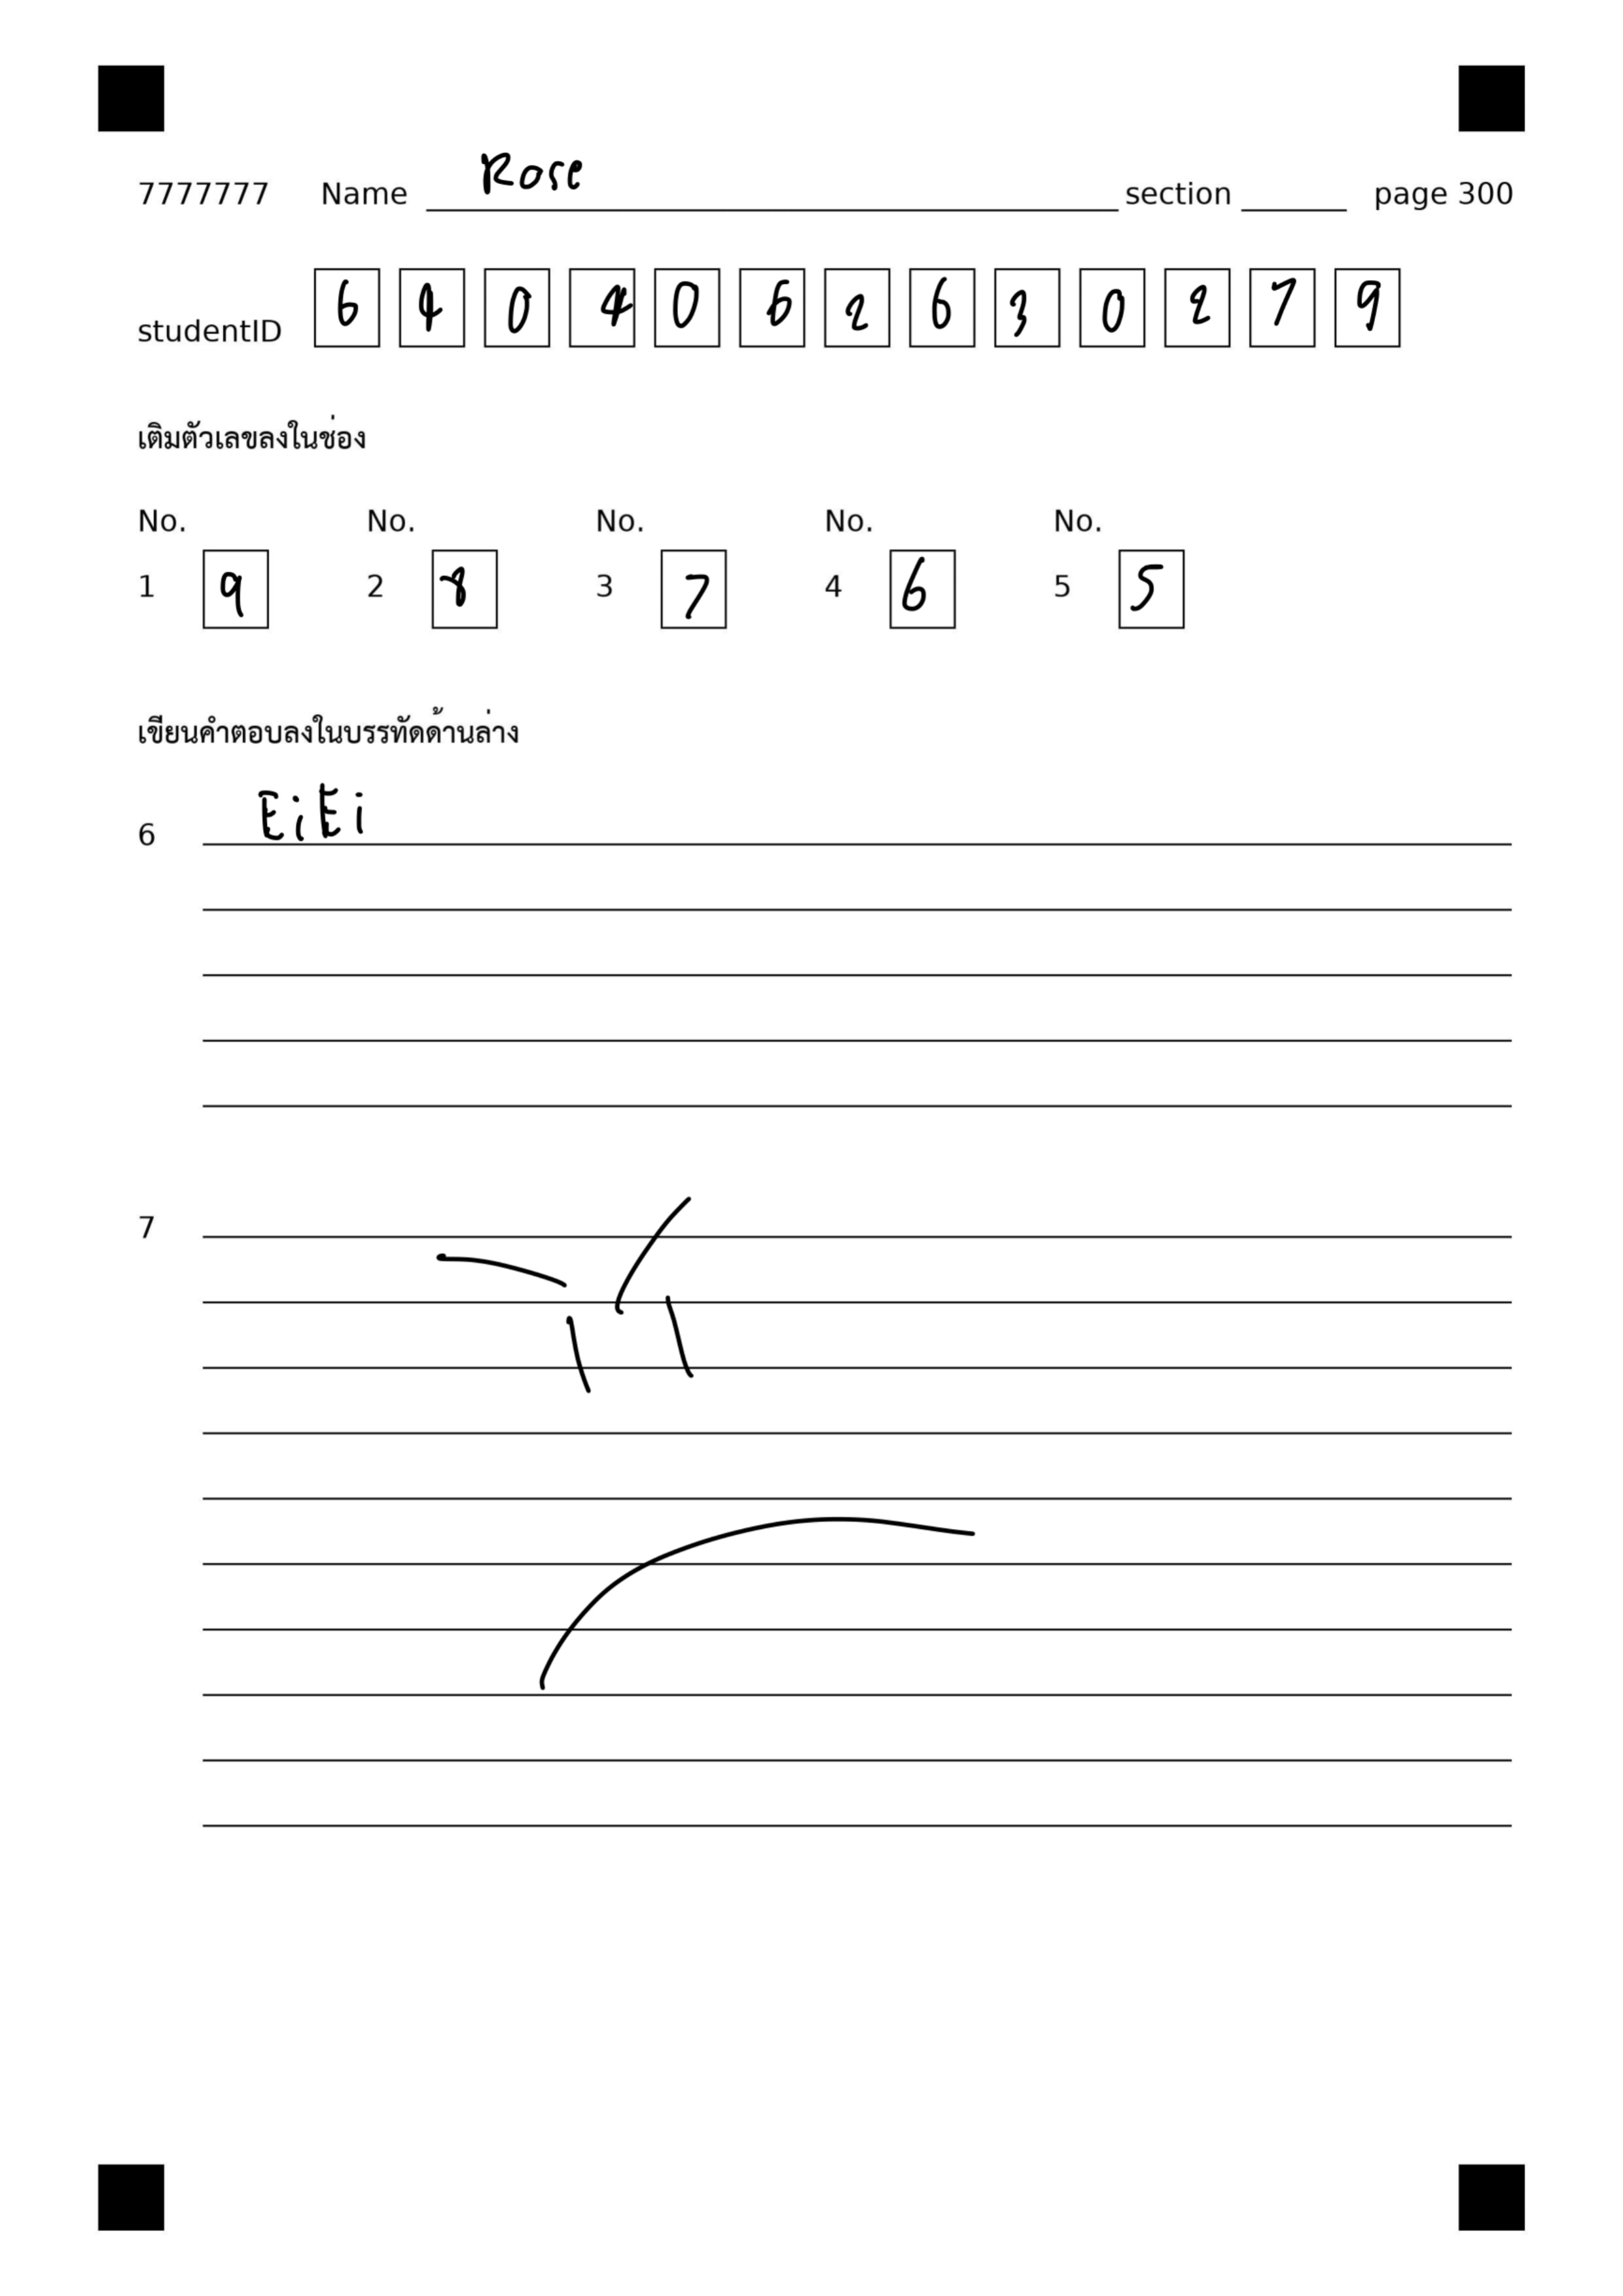 7777777 Name Rose section page 300
studentID 6 4 0 4 0 6 2 6 3 0 2 7 9
เติมตัวเลขลงในช่อง
No. No. No. No. No.
1 9 2 8 3 7 4 6 5 5
เขียนคำตอบลงในบรรทัดด้านล่าง
6 EiEi
7